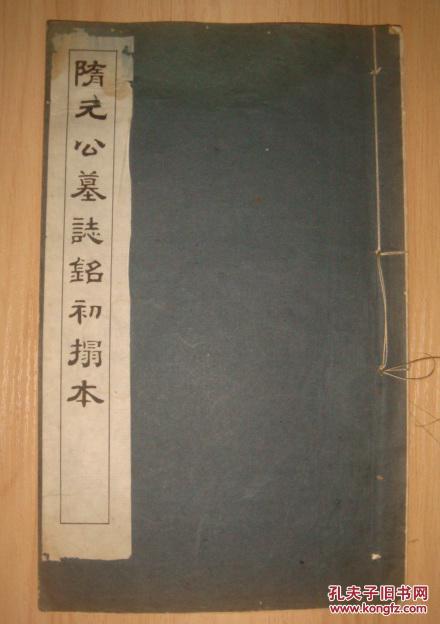 隋元公墓誌銘初搨本
孔夫子旧书网
www.kongfz.com